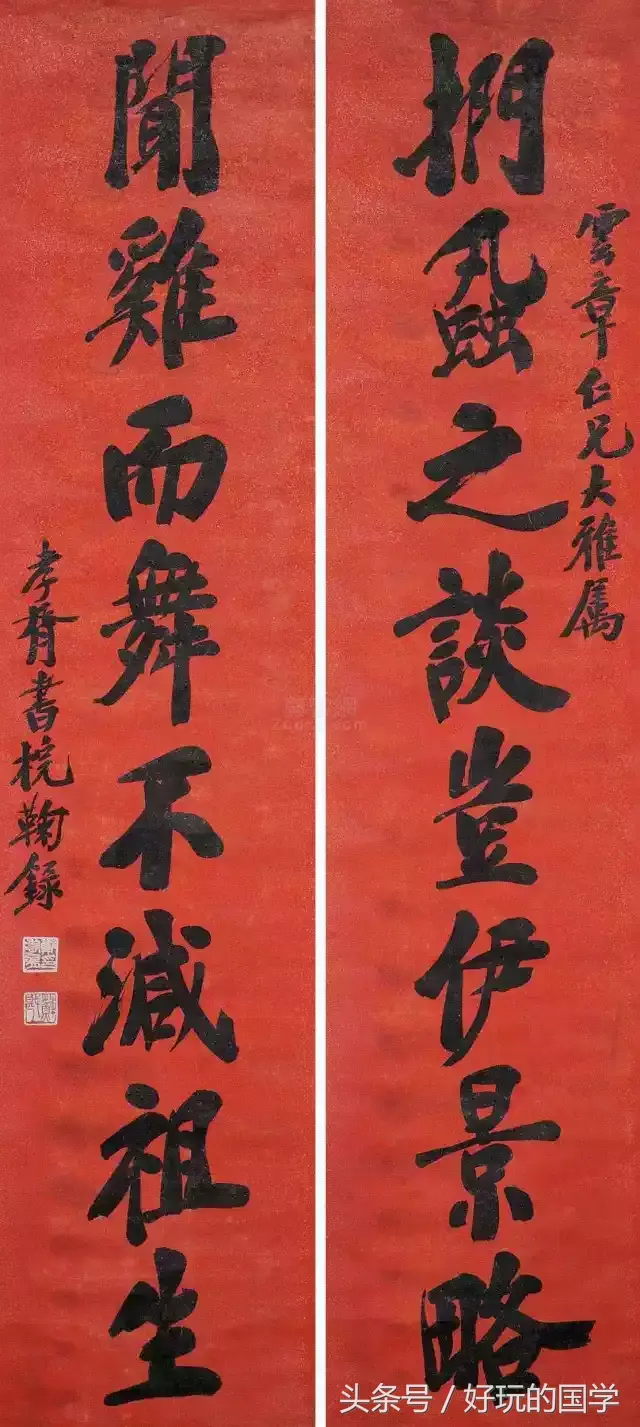 雲章仁兄大雅属
捫蝨之談豈伊景略
聞雞而舞不減祖生
孝胥書㭇鞠錄
头条号 / 好玩的国学